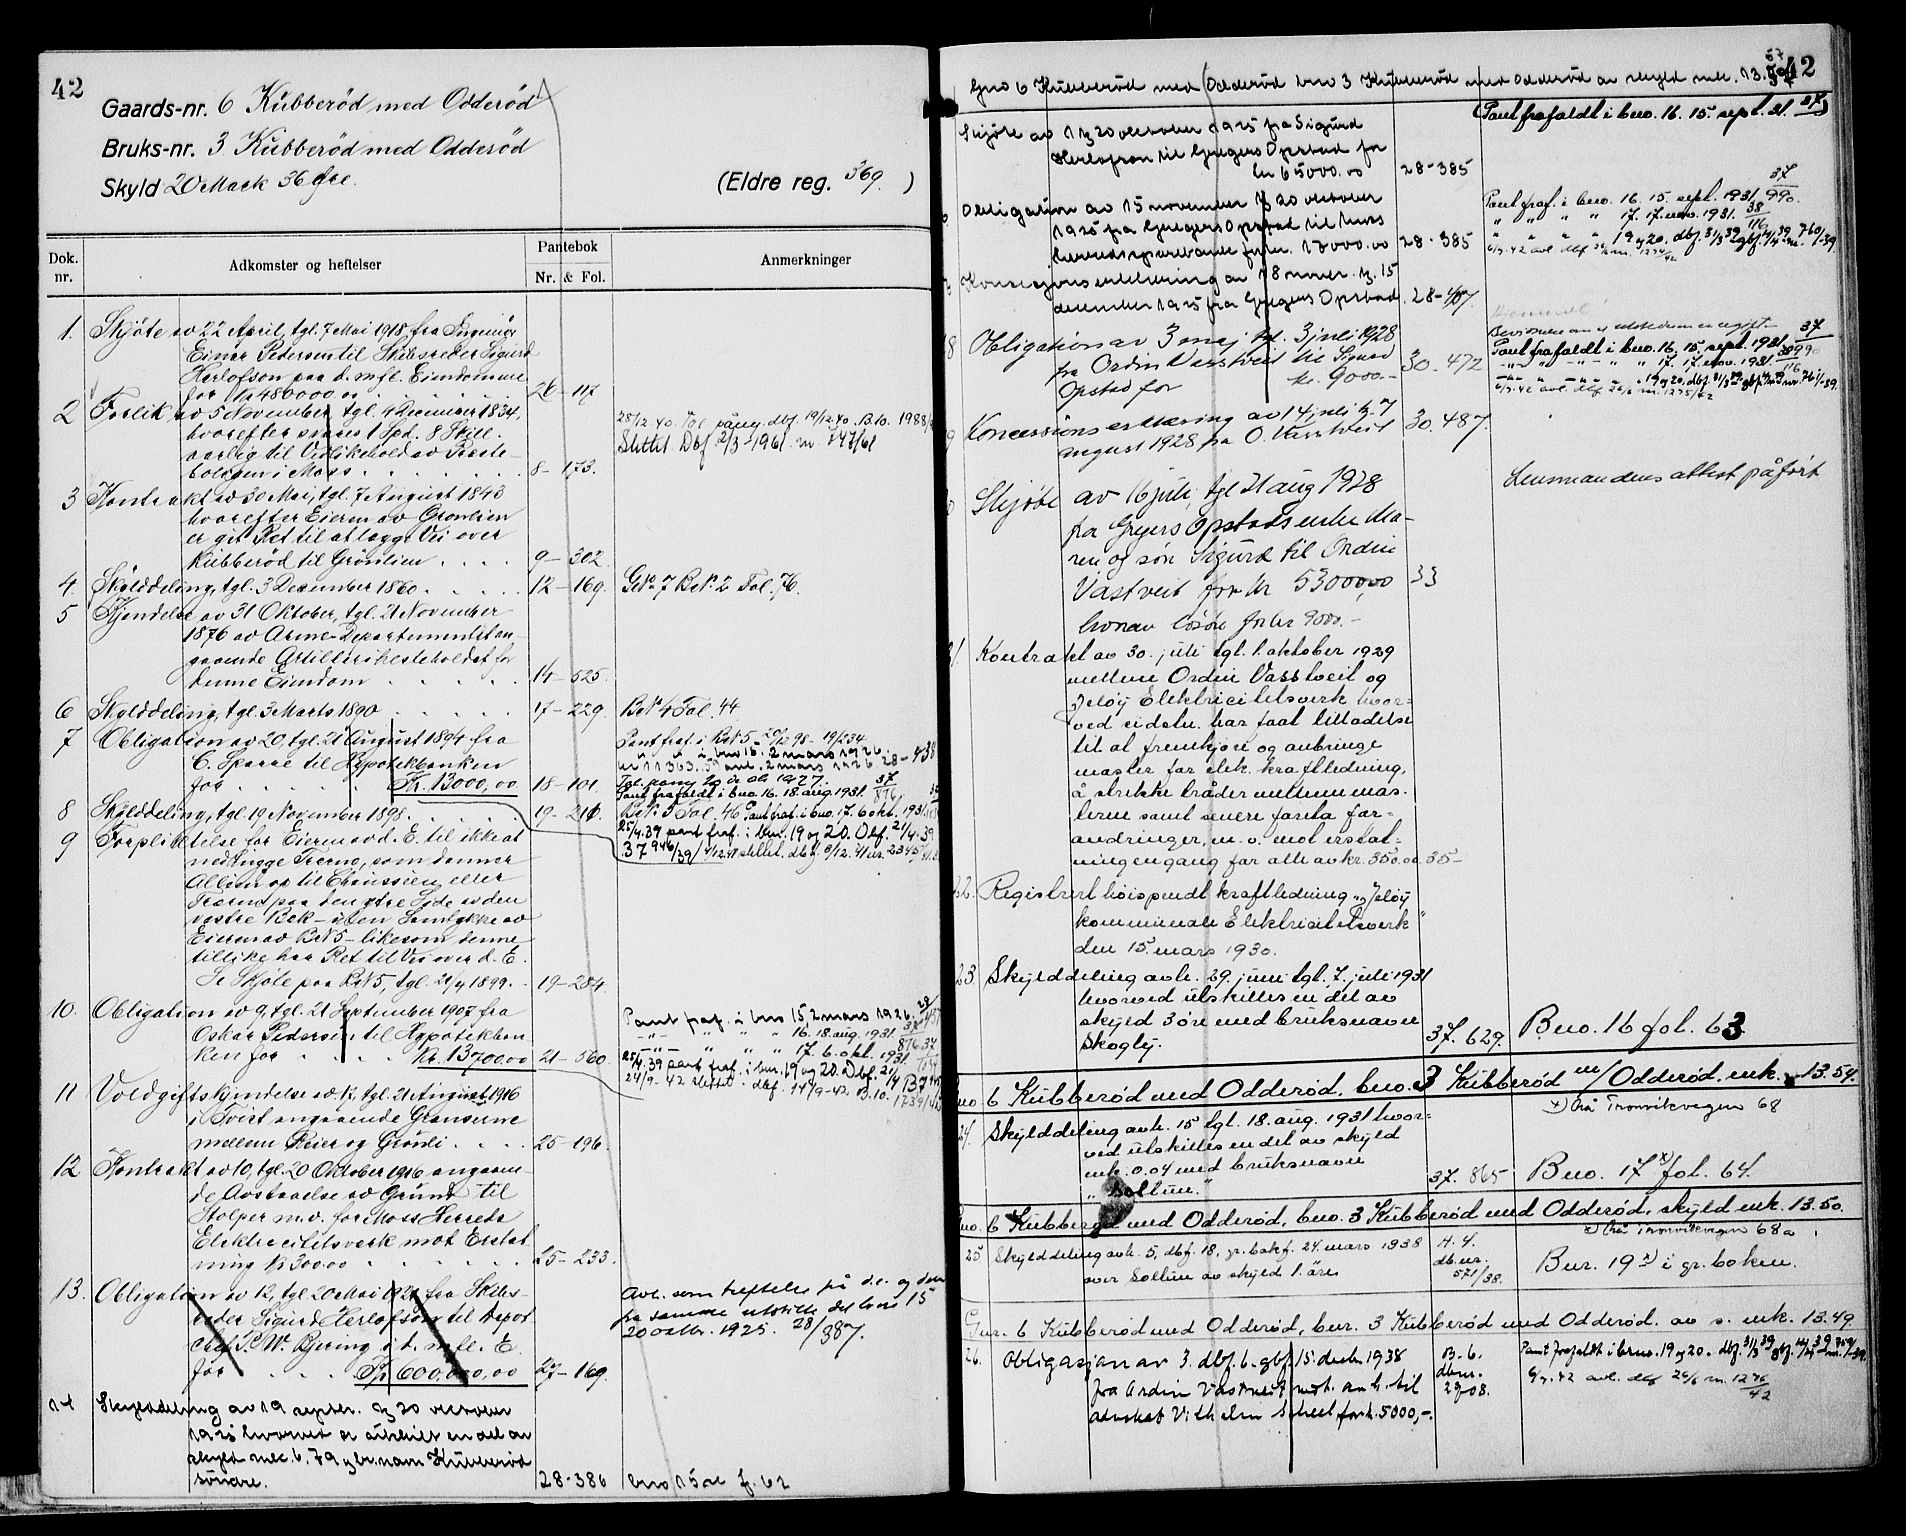 42
Gaards-nr. 6 Kubberød med Odderød
Bruks-nr. 3 Kubberød med Odderød
Skyld 20 Mark 36 Øre.
(Eldre reg. 369. )
Dok. nr.
Adkomster og heftelser
Pantebok
Nr. & Fol.
Anmerkninger
1. Skjøte av 22 April, tgl. 7 Mai 1918, fra Ingeniør
Einar Pedersen til Skibsreder Sigurd
Herlofson paa d. m. fl. Eiendomme
for Kr 480000.00 26 - 117
2 Forlik av 5 November, tgl. 4 December 1834,
hvorefter svares 1 Spd. 8 Skill.
aarlig til Vedlikehold av Præste-
boligen i Moss 8 - 173.
28/12 40. Tol. påny. dbf. 19/12.40. B.10. 1988/
Slettet Dbf 2/3-1961. nr 747/61
3 Kontrakt av 30 Mai, tgl. 7 August 1843
hvorefter Eieren av Grønlien
er git Ret til at lægge Vei over
Kubberød til Grønlien 9 - 302.
4. Skylddeling, tgl. 3 December 1860. 12 - 169. GNo 7 BNo 2 Fol. 76.
5 Kjendelse av 31 Oktober, tgl. 21 November
1876 av Arme-Departementet an-
gaaende Artillerihesteholdet for
denne Eiendom 14 - 525.
6 Skylddeling, tgl. 3 Marts 1890 17 - 229. BNo 4 Fol. 44
7 Obligation av 20, tgl. 21 August 1894 fra
C. Sparre til Hypotekbanken
for Kr. 13000,00 18 - 101.
Pant fraf. i BNo 5 - 20/12 98 - 19/234
" " i bno 15. 2 mars 1926. 28 - 438
Tgl. paany 20 de ok 1927.
Pant frafaldt i bno. 16. 18. aug. 1931. 37/876
8 Skylddeling, tgl 19 November 1898. 19 - 210. BNo 5 Fol. 46 Pant fraf. i bno. 17. 6 okt. 1931
25/4.39 pant fraf. i bnr. 19 og 20. Dbf. 21/4.39
9 Forpliktelse for Eieren av d. E. til ikke at
nedhugge Træerne, som danner
Alléen op til Chausseen, eller
Træerne paa den østre Side av den
vestre Bæk - uten Samtykke av
Eieren av BNo 5 - likesom denne
tillike har Ret til Vei over d. E.
Se Skjøte paa BNo 5, tgl. 21/4 1899. 19 - 284.
10. Obligation av 9, tgl. 21 September 1907 fra
Oskar Pedersen til Hypotekban
ken for Kr. 13700.00 21 - 560.
Pant fraf. i bno 15 2 mars 1926.
-"- " " " 16. 18 aug. 1931.
-"- " " " 17. 6. okt. 1931.
25/4.39 pant fraf. i bnr. 19 og 20. Dbf. 21/4
24/9-42 slettet. dbf. 14/9-42 B.10. 1739/42
11 Voldgiftskjendelse av R. tgl. 21 August 1916
i Tvist angaaende Grænserne
mellem Reier og Grønli 25 - 196.
12 Kontrakt av 10, tgl. 20 Oktober 1916 angaaen-
de Avstaaelse av Grund til
Stolper m.v. for Moss Herreds
Elektricitetsverk mot Erstat-
ning Kr 300.00 25 - 233.
13. Obligation av 12, tgl 20 Mai 1921 fra Skibs-
reder Sigurd Herlofson til Depot
chef P. W. Bjering i d. m. fl. E.
for Kr 600,000,00 27 - 169.
Avl. som heftelse på d.e. og den
fra samme utskilte del bno 15
20 oktbr. 1925. 28/387.
14 Skylddeling av 19 septbr. tg 20 oktober
1925 hvorved er utskilt en del av
skyld mrk. 6.79 og br.navn Kubberød
søndre. 28-386 bno 15 se f. 62
42
Gno 6 Kubberød med Odderød bno 3 Kubberød med Odderød av skyld mrk. 13.57
Skjøte av 1 tg 20 oktober 1925 fra Sigurd
Herlofson til Gregers Opstad for
kr 65000.00 28-385
Pant frafaldt i bno. 16. 15. sept. 31.
Obligation av 15 november tg 20 oktober
1925 fra Gregers Opstad til Moss
herredssparebank for kr. 17000.00 28-385
Pant fraf. i bno. 16. 15. sept. 1931 37/990.
" " " " 17. 17. nov. 1931. 38/116
" " " " 19 og 20. dbf. 31/3 39 gbf. 14/4 39 nr. 760/39.
Konsesjonserklæring av 18 novbr. tg. 15
december 1925 fra Gregers Opstad. 28-407.
18 Obligation av 3 maj tgl. 3 juli 1928
fra Ordin Vasstveit til Sigurd
Opstad for kr. 9000.- 30. 472
Pant frafaldt i bno. 16. 15. sept. 1931 37/990
-"- " -"- " 17. 17. nov. 1931 38/116
Koncessionserklæring av 14 juli tg. 7
august 1928 fra O. Vasstveit 30. 487.
Skjøte av 16 juli, tgl 21 aug 1928
fra Gregers Opstads enke Ma-
ren og søn Sigurd til Ordin
Vastveit for kr 53000,00 33
hvorav løsøre for kr 9000.-
Lensmandens attest påført
21. Kontrakt av 30. juli tgl. 1. oktober 1929
mellem Ordin Vasstveit og
Jeløy Elektricitetsverk hvor-
ved sidstn. har faat tilladelse
til at fremkjøre og anbringe
master for elek. kraftledning,
å strekke tråder mellem mas-
terne samt senere foreta for-
andringer, m. v. mot erstat-
ning en gang for alle av kr. 350.00 35-
22. Registrert høispendt kraftledning "Jeløy
kommunale Elektricitetsverk"
den 15. mars 1930.
23. Skylddeling avh. 29. juni tgl. 7. juli 1931
hvorved utskilles en del av
skyld 3 øre med bruksnavn
Skogly. 37. 629. Bno. 16 fol. 63
Gno 6 Kubberød med Odderød, bno. 3 Kubberød m/ Odderød, mrk. 13.54.
24. Skylddeling avh. 15 tgl. 18. aug. 1931 hvor-
ved utskilles en del av skyld
mrk. 0.04 med bruksnavn
"Soltun." 37. 865 Bno. 17 x) fol. 64.
x) Nå Tronvikvegen 68
Gno. 6 Kubberød med Odderød, bno. 3 Kubberød med Odderød, skyld mrk. 13.50.
x) Nå Tronvikvegen 68a
25 Skylddeling avh. 5, dbf. 18, gr. bokf. 24. mars 1938
over Soltun av skyld 1. øre A. 4. db.nr. 571/38. Bnr. 19 x) i gr. boken.
Gnr. 6 Kubberød med Odderød, bnr. 3 Kubberød med Odderød. av s. mrk. 13.49.
26. Obligasjon av 3. dbf. 6. gbf. 15. desbr 1938
fra Ordin Vastveit til
advokat Vilhelm Scheel for kr. 5000,-. B. 6. dbnr. 2908.
Pant frafaldt i bnr. 19 og 20. dbf. 31/3 39 gbf. 14/4 39 nr. 759/39.
6/7.42 avl. dbf 26/6 nr. 1276/42